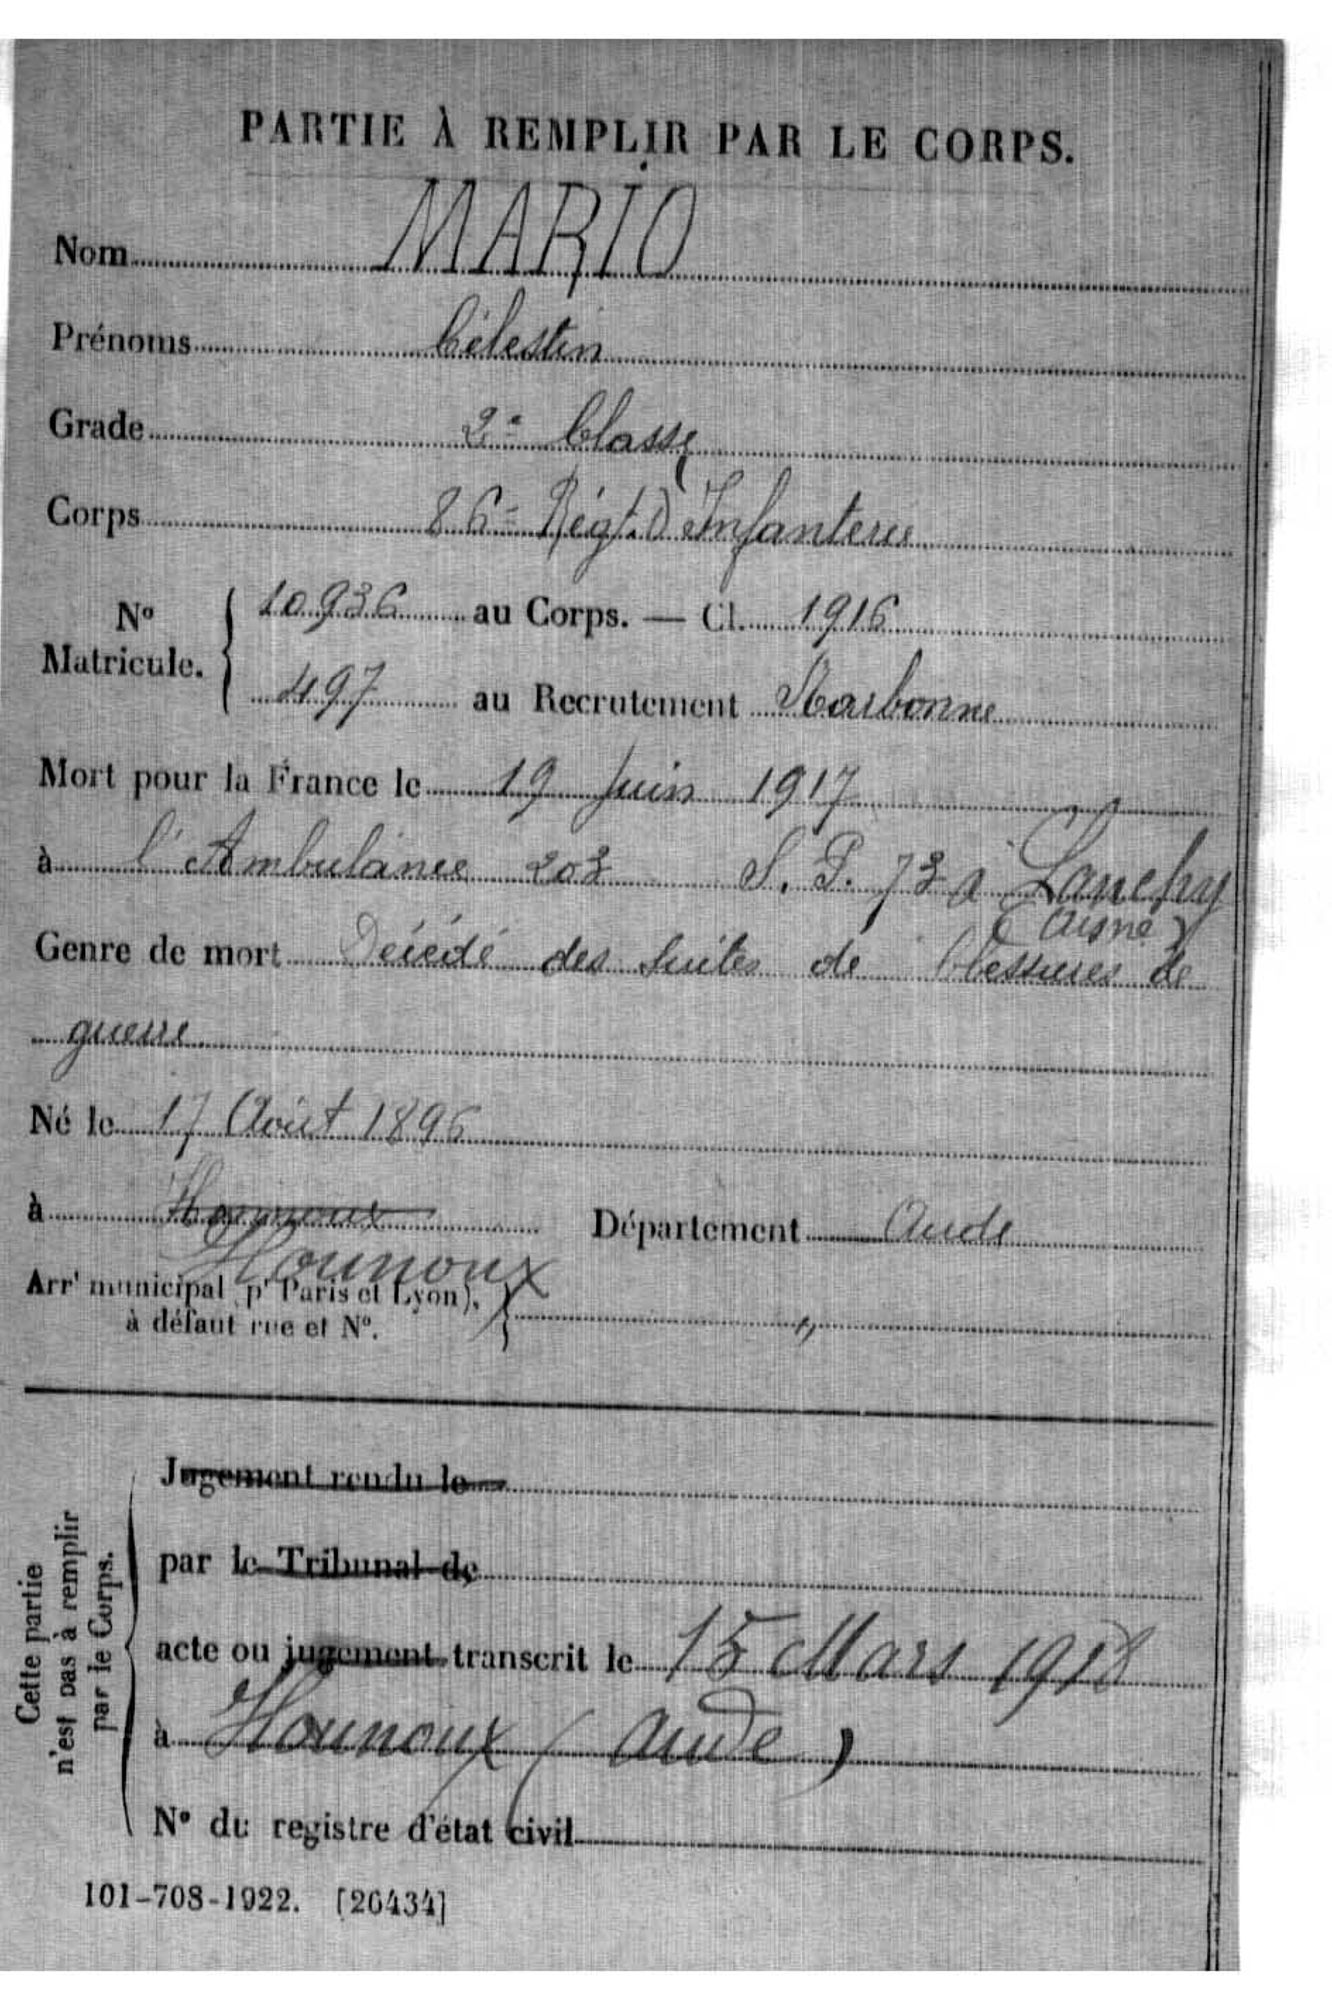 PARTIE À REMPLIR PAR LE CORPS.
Nom MARIO
Prénoms Célestin
Grade 2e Classe
Corps 86e Régt. d'Infanterie
No Matricule. 10936 au Corps. — Cl. 1916
497 au Recrutement Narbonne
Mort pour la France le 19 Juin 1917
à l'Ambulance 203 S. P. 73 à Lanchy
(Aisne)
Genre de mort Décédé des suites de blessures de
guerre
Né le 17 Août 1896
à Département Aude
Hounoux
Arrt municipal (pr Paris et Lyon),
à défaut rue et No. "
Cette partie
n'est pas à remplir
par le Corps.
Jugement rendu le
par le Tribunal de
acte ou jugement transcrit le 15 Mars 1918
à Hounoux (Aude)
No du registre d'état civil
101-708-1922. [26434]